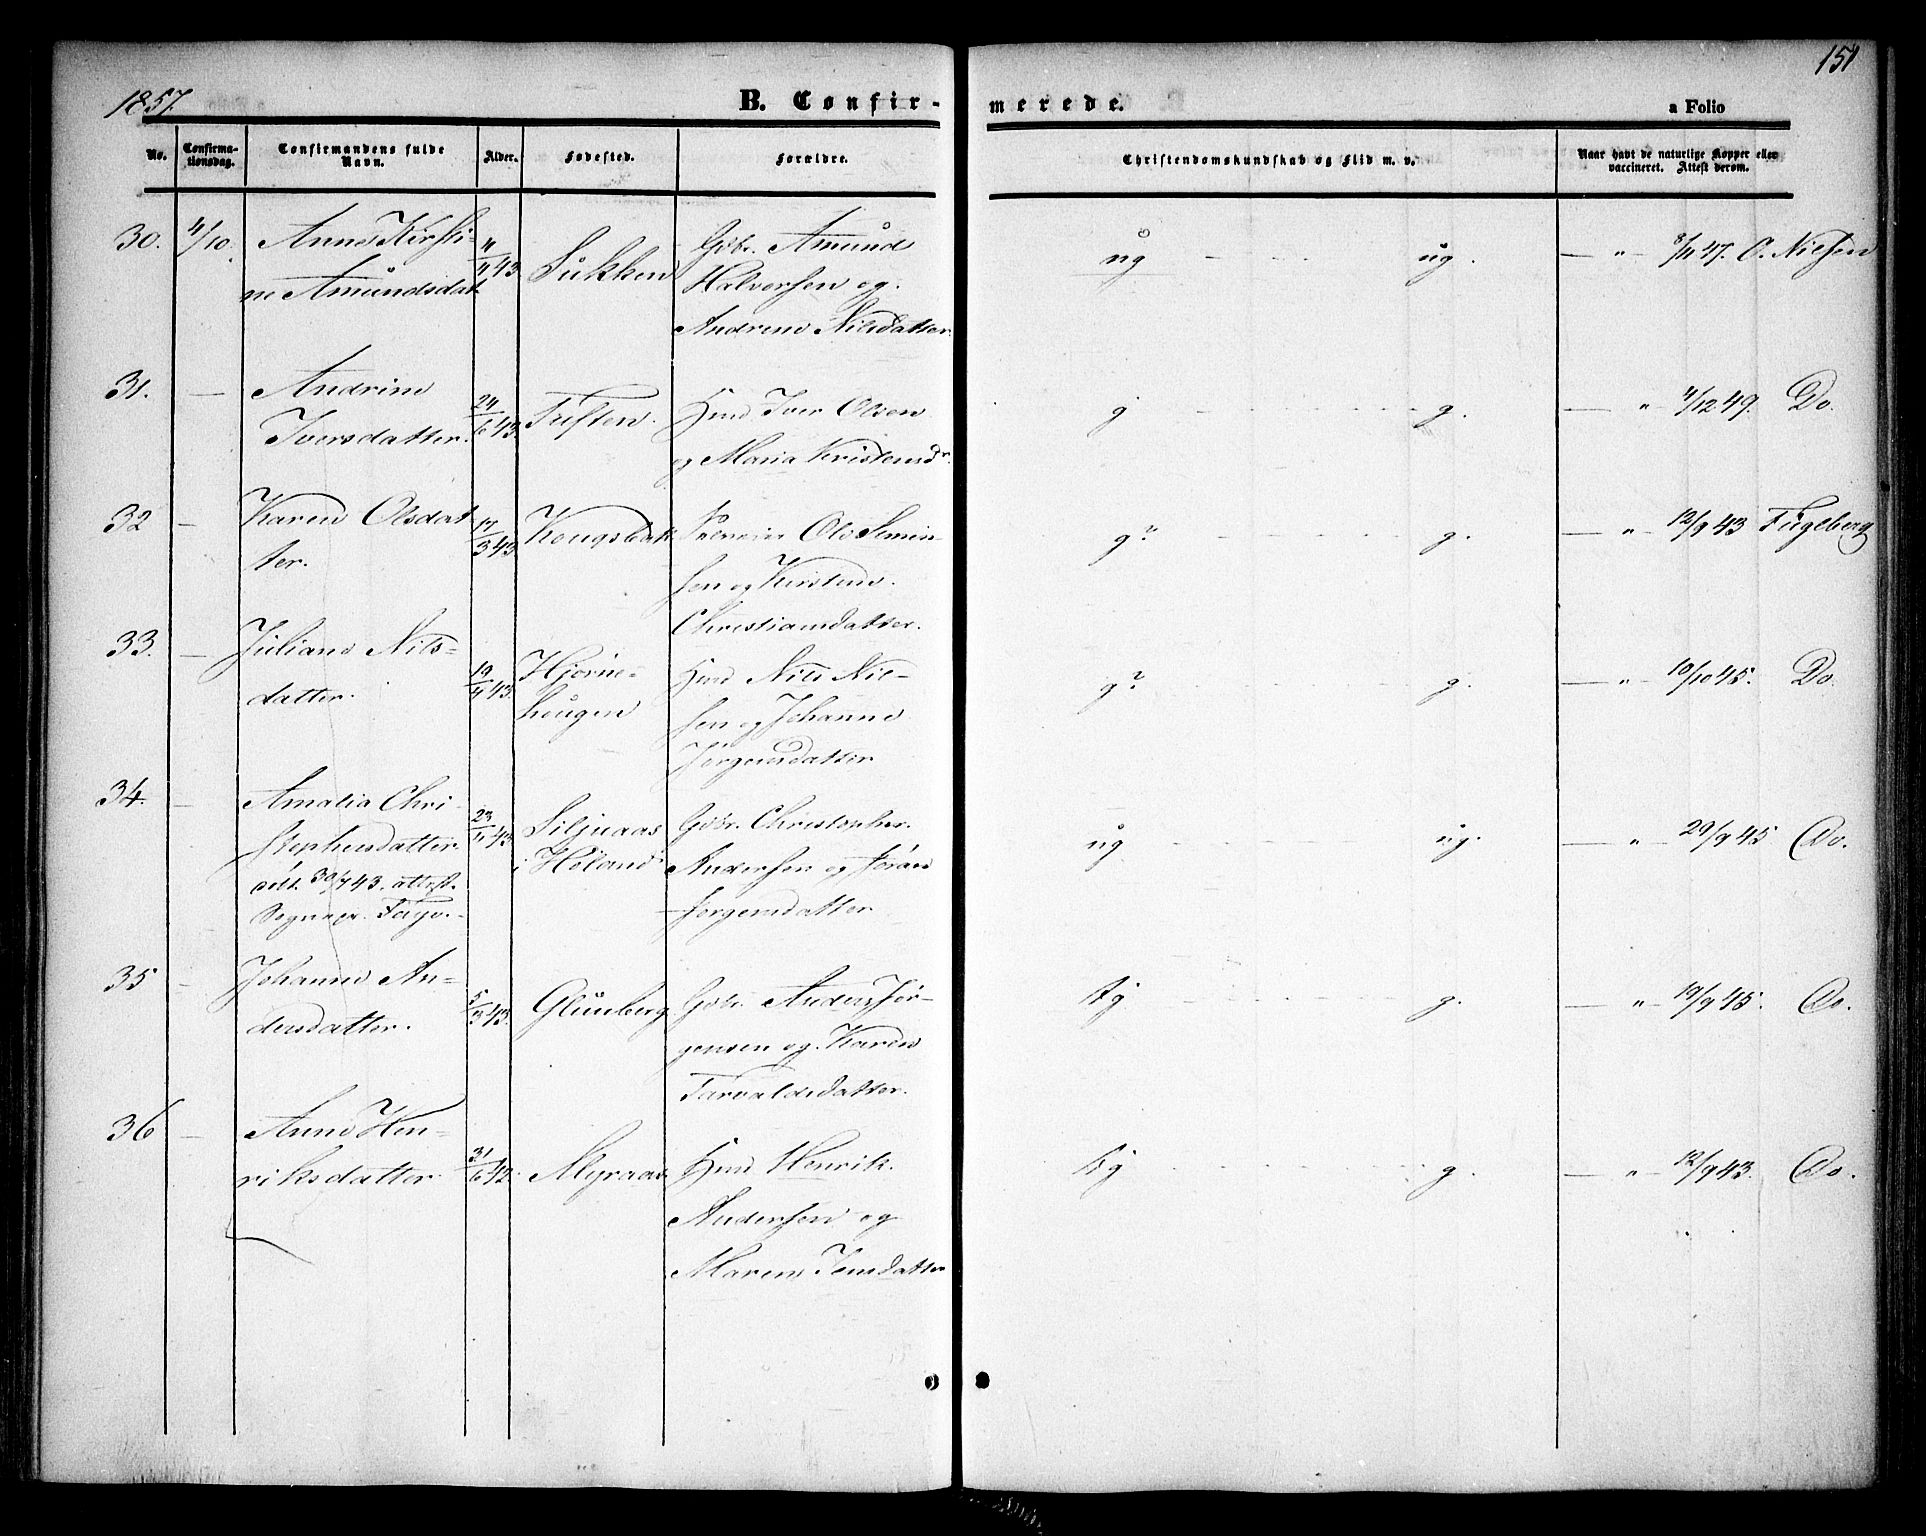 1857.
B. Confir-
merede.
a Folio
151
No.
Confirma-
tionsdag.
Confirmandens fulde
Navn.
Alder.
Fødested.
Forældre.
Christendomskundskab og Flid m. v.
Naar havt de naturlige Kopper eller
vaccineret. Attest derom.
30. 4/10. Anne Kirsti-
ne Amundsdat 11/11 43 Sukken Gbr. Amund
Halvorsen og
Andrine Nilsdatter.
ug ug. — " — 8/11 47. O. Nielsen
31. — Andrine
Iversdatter. 24/6 43. Tuften. Hmd Iver Olsen
og Maria Kristensdr.
g g. — " 4/12 49. Do.
32 — Karen Olsdat
ter. 17/3 43. Kougsbak Ole Simen-
sen og Kirstine
Christiansdatter.
g? g. — " — 12/9 43 Fugleberg
33. — Juliane Nils-
datter. 19/11 43. Hjorne-
haugen Hmd Nils Niel-
sen og Johanne
Jørgensdatter
g? g. — " — 10/10 45. Do.
34. — Amalia Chri
stophersdatter. 23/4 43. Siljuaas
i Høland Gbr. Christopher
Andersen og Jøran
Jørgensdatter
døbt 30/7 43. attest.
Sognepr.
ug ug. " — 29/9 45 Do.
35 — Johanne An-
dersdatter. 5/3 43. Glumberg Gbr. Anders Jør-
gensen og Karen
Tarvaldsdatter.
g. — " — 19/9 45. Do.
36 — Anne Hen-
riksdatter 31/6 42. Myraas Hmd Henrik
Andersen og
Maren Jensdatter
g. — " — 12/9 43. Do.